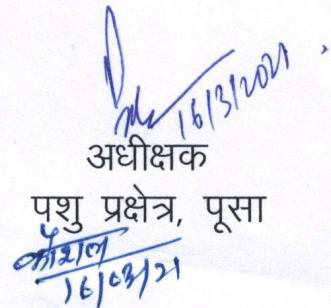 16/3/2021
अधीक्षक
पशु प्रक्षेत्र, पूसा
कौशल
16/03/21